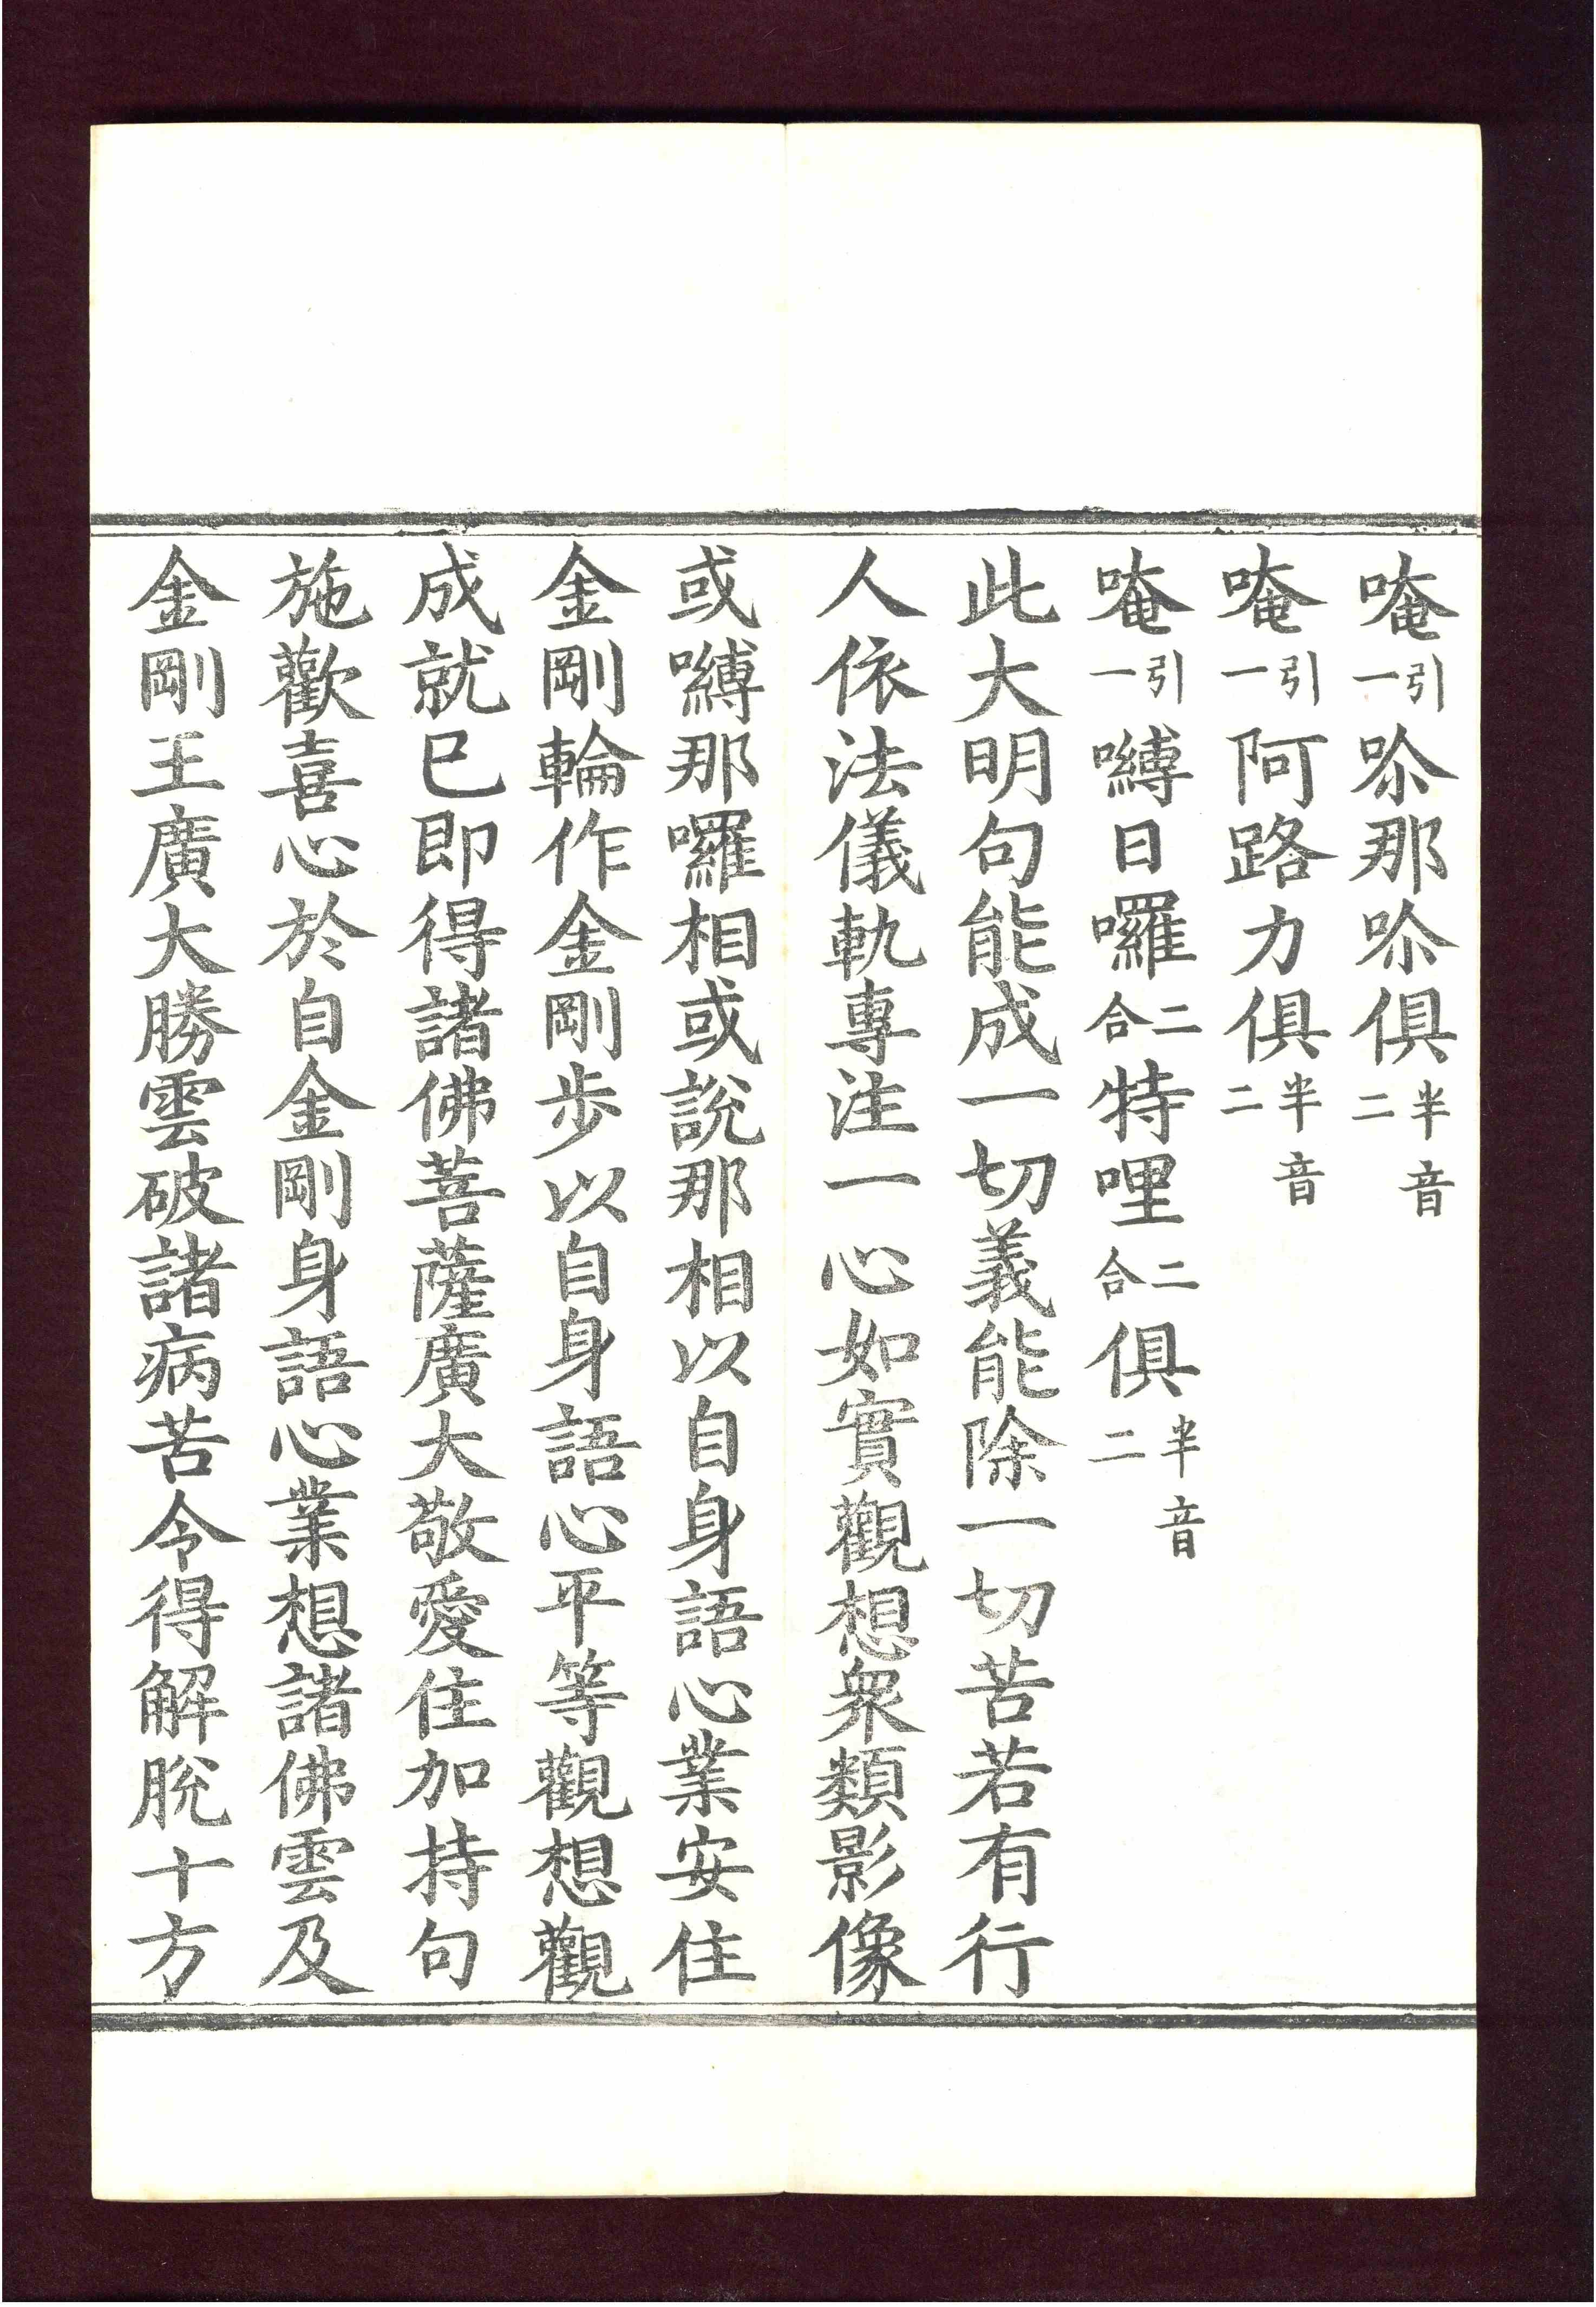 唵引一㖿那㖿俱半音二
唵引一阿路力俱半音二
唵引一嚩日囉二合特哩二合俱半音二
此大明句能成一切義能除一切苦若有行
人依法儀軌專注一心如實觀想衆類影像
或嚩那囉相或說那相以自身語心業安住
金剛輪作金剛步以自身語心平等觀想觀
成就已即得諸佛菩薩廣大敬愛住加持句
施歡喜心於自金剛身語心業想諸佛雲及
金剛王廣大勝雲破諸病苦令得解脫十方